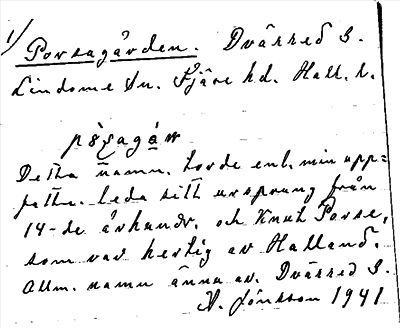 1/
Porsagården. Dvärred 3.
Lindome sn. Fjäre hd. Hall. l.
Detta namn torde enl. min upp=
fattn. leda sitt ursprung från
14-de århundr. och Knut Porse,
som var hertig av Halland.
Allm. namn ännu av Dvärred 3.
A. Jönsson 1941